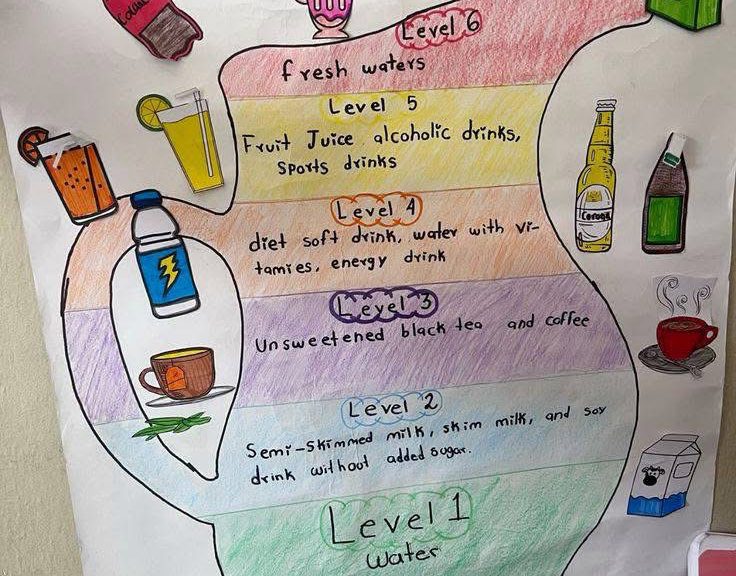 Level 6
fresh waters
Level 5
Fruit Juice alcoholic drinks,
sports drinks
Level 4
diet soft drink, water with vi-
tamies, energy drink
Level 3
Unsweetened black tea and coffee
Level 2
Semi-skimmed milk, skim milk, and soy
drink without added sugar.
Level 1
Water
Corona